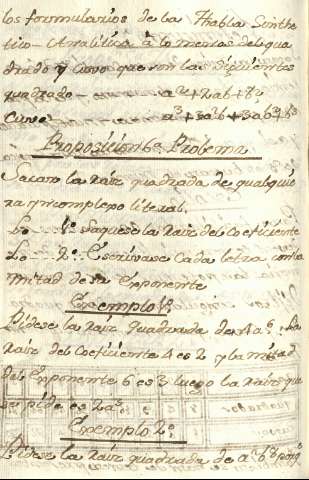 los formularios de la Thabla Sinthe
tico-Analitica à lo menos del qua
drado y Cuvo que son las siguientes
quadrado - a² + 2ab + b²
Cuvo - a³ + 3a²b + 3ab² + b³
Proposicion 6ª Problema
Sacar la raiz quadrada de qualquie
ra incomplexo literal.
Lo 1º Saquese la raiz del coeficiente
Lo 2º Escrivase cada letra con la
mitad de su Exponente
Exemplo 1º
Pidese la raiz quadrada de 4a⁶. La
raiz del coeficiente 4 es 2 y la mitad
del Exponente 6 es 3 luego la raiz que
se pide es 2a³
Exemplo 2º
Pidese la raiz quadrada de